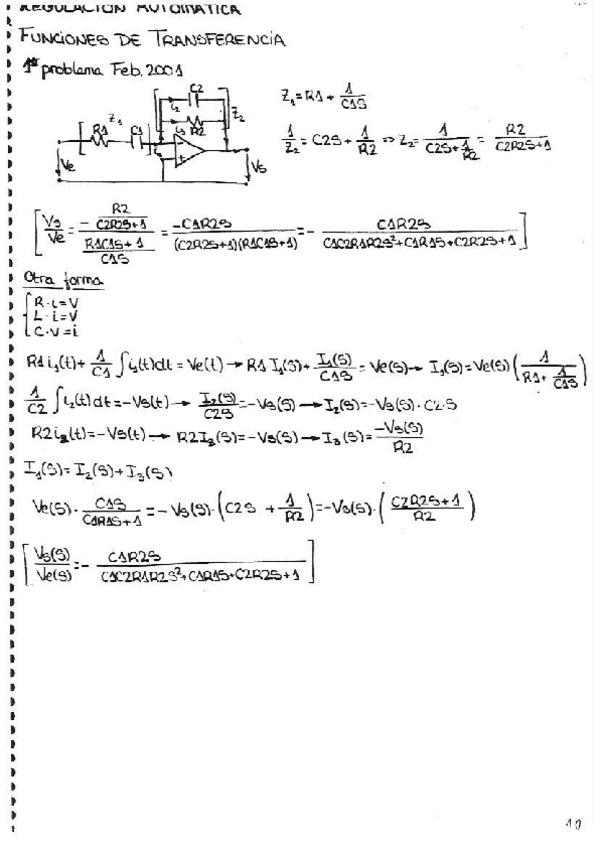 REGULACIÓN AUTOMÁTICA
FUNCIONES DE TRANSFERENCIA
1er problema Feb. 2001
Z1 R1 C1 C2 i2 R2 i3 Z2 Ve Vs - +
Z1 = R1 + 1/C1S
1/Z2 = C2S + 1/R2 => Z2 = 1/(C2S + 1/R2) = R2/(C2R2S+1)
[Vs/Ve = - (R2/(C2R2S+1))/((R1C1S+1)/C1S) = -C1R2S/((C2R2S+1)(R1C1S+1)) = - C1R2S/(C1C2R1R2S²+C1R1S+C2R2S+1)]
Otra forma
{R·i=V
L·i=V
C·V=i
R1 i1(t) + 1/C1 ∫i1(t)dt = Ve(t) → R1 I1(S) + I1(S)/C1S = Ve(S) → I1(S) = Ve(S) (1/(R1 + 1/C1S))
1/C2 ∫i2(t)dt = -Vs(t) → I2(S)/C2S = -Vs(S) → I2(S) = -Vs(S)·C2·S
R2 i3(t) = -Vs(t) → R2I3(S) = -Vs(S) → I3(S) = -Vs(S)/R2
I1(S) = I2(S) + I3(S)
Ve(S)· C1S/(C1R1S+1) = -Vs(S)·(C2S + 1/R2) = -Vs(S)·((C2R2S+1)/R2)
[Vs(S)/Ve(S) = - C1R2S/(C1C2R1R2S²+C1R1S+C2R2S+1)]